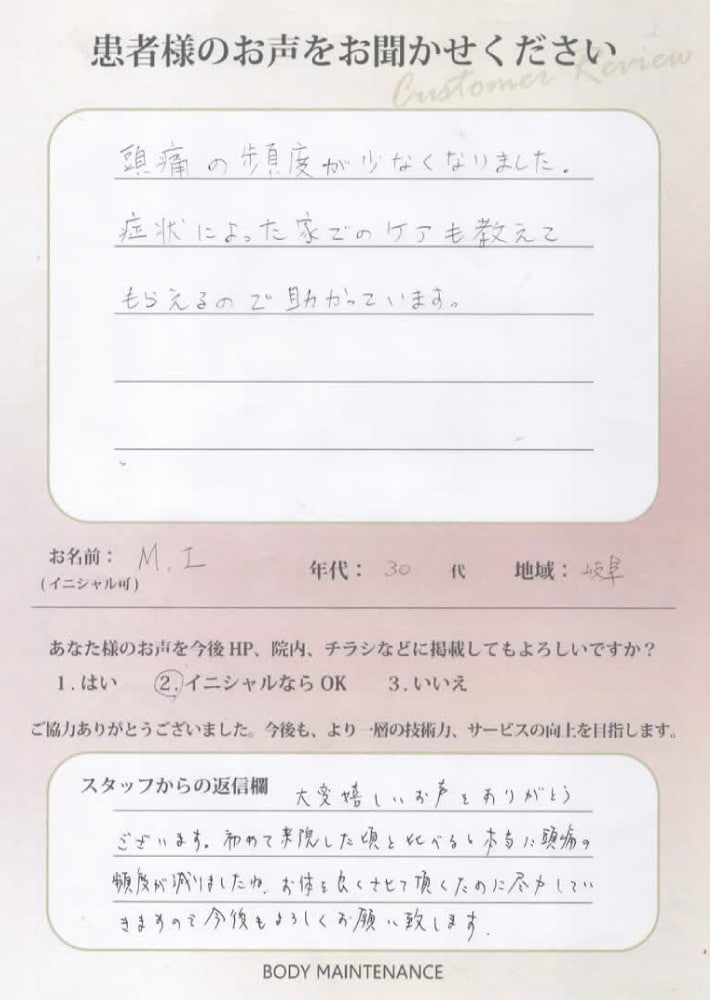 患者様のお声をお聞かせください
Customer Review
頭痛の頻度が少なくなりました。
症状によった家でのケアも教えて
もらえるので助かっています。
お名前： M.I 年代： 30 代 地域： 岐阜
(イニシャル可)
あなた様のお声を今後HP、院内、チラシなどに掲載してもよろしいですか？
1.はい ②.イニシャルならOK 3.いいえ
ご協力ありがとうございました。今後も、より一層の技術力、サービスの向上を目指します。
スタッフからの返信欄 大変嬉しいお声をありがとう
ございます。初めて来院した頃と比べると本当に頭痛の
頻度が減りましたね。お体を良くさせて頂くために尽力してい
きますので今後もよろしくお願い致します。
BODY MAINTENANCE